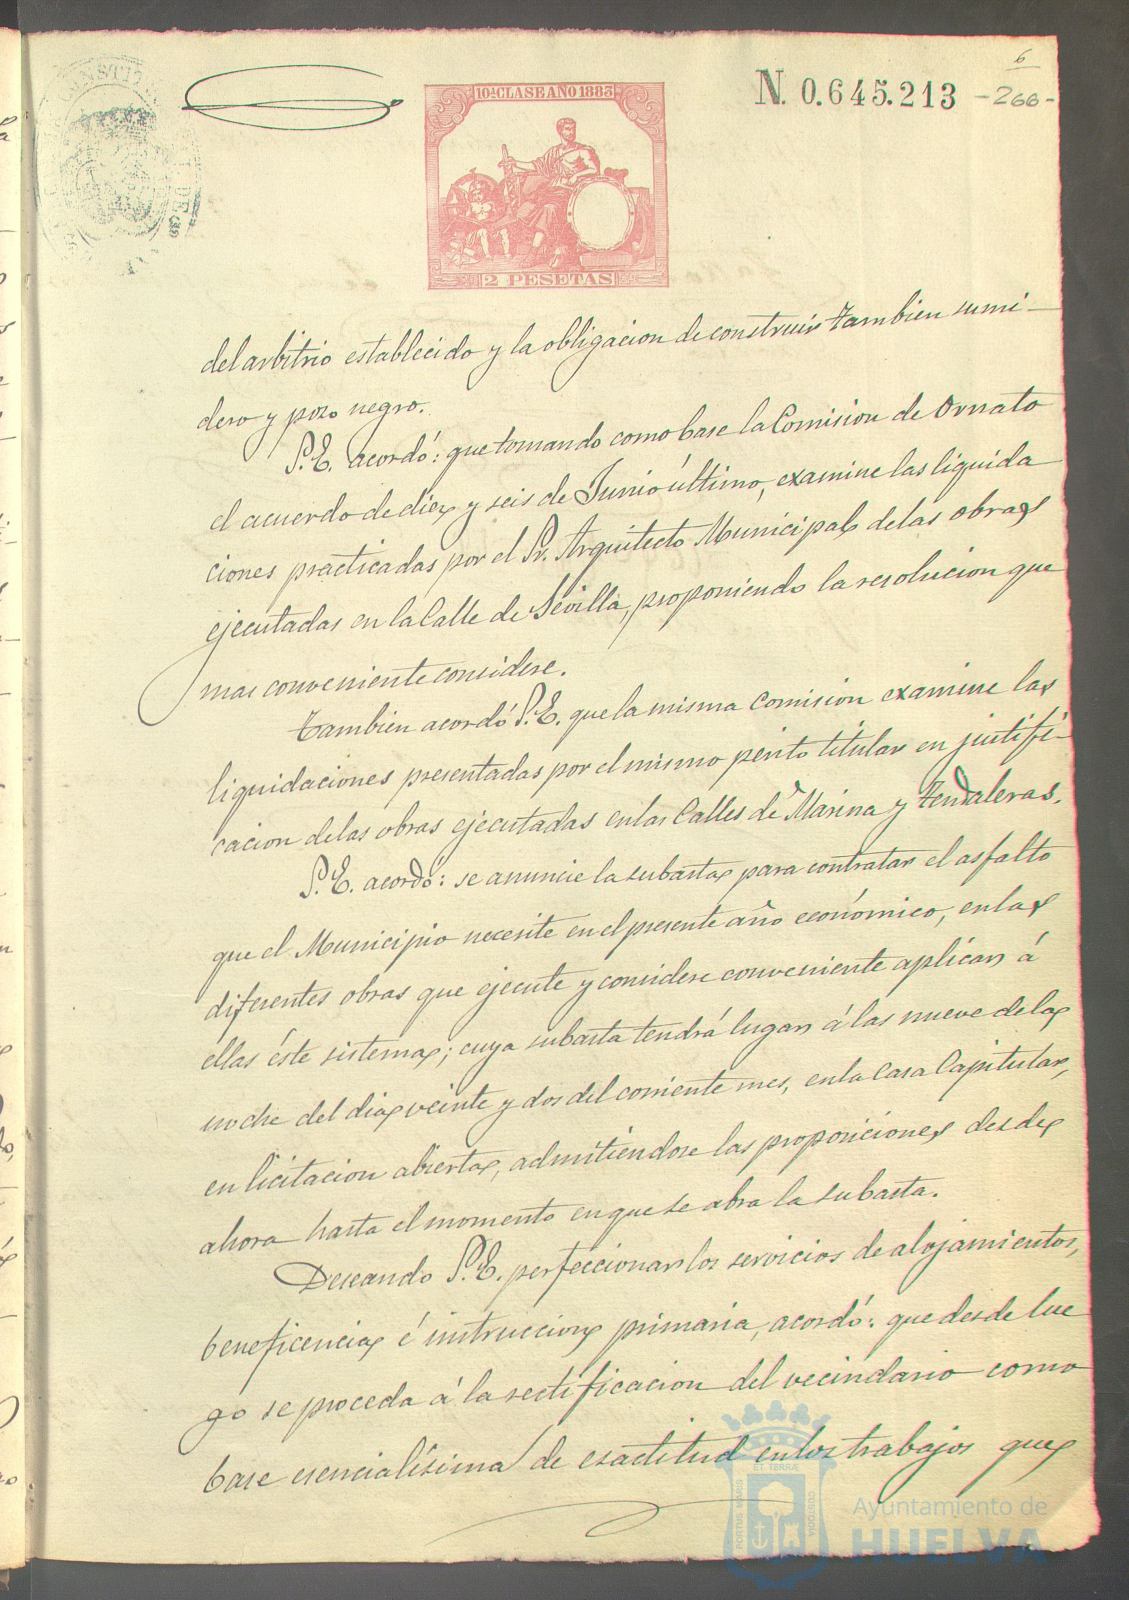 6
N. 0.645.213 -266-
10ª CLASE AÑO 1883
2 PESETAS
del arbitrio establecido y la obligacion de construir tambien sumi-
dero y pozo negro.
S.E. acordó: que tomando como base la Comision de Ornato
el acuerdo de diez y seis de Junio último, examine las liquida
ciones practicadas por el Sr. Arquitecto Municipal de las obras
ejecutadas en la Calle de Sevilla, proponiendo la resolucion que
mas conveniente considere.
Tambien acordó S.E. que la misma Comision examine las
liquidaciones presentadas por el mismo perito titular en justifi-
cacion de las obras ejecutadas en las Calles de Marina y Tendaleras.
S.E. acordó: se anuncie la subasta para contratar el asfalto
que el Municipio necesite en el presente año económico, en las
diferentes obras que ejecute y considere conveniente aplicar á
ellas éste sistema; cuya subasta tendrá lugar á las nueve de la
noche del dia veinte y dos del corriente mes, en la Casa Capitular,
en licitacion abierta, admitiendose las proposiciones desde
ahora hasta el momento en que se abra la subasta.
Deseando S.E. perfeccionar los servicios de alojamientos,
beneficencia é instruccion primaria, acordó: que desde lue
go se proceda á la rectificacion del vecindario como
base esencialísima de exactitud en los trabajos que
PORTUS MARIS ET TERRÆ CUSTODIA
Ayuntamiento de
HUELVA